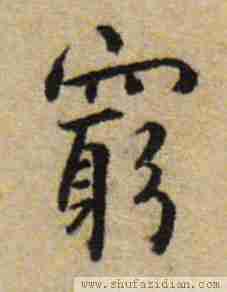 窮
www.shufazidian.com